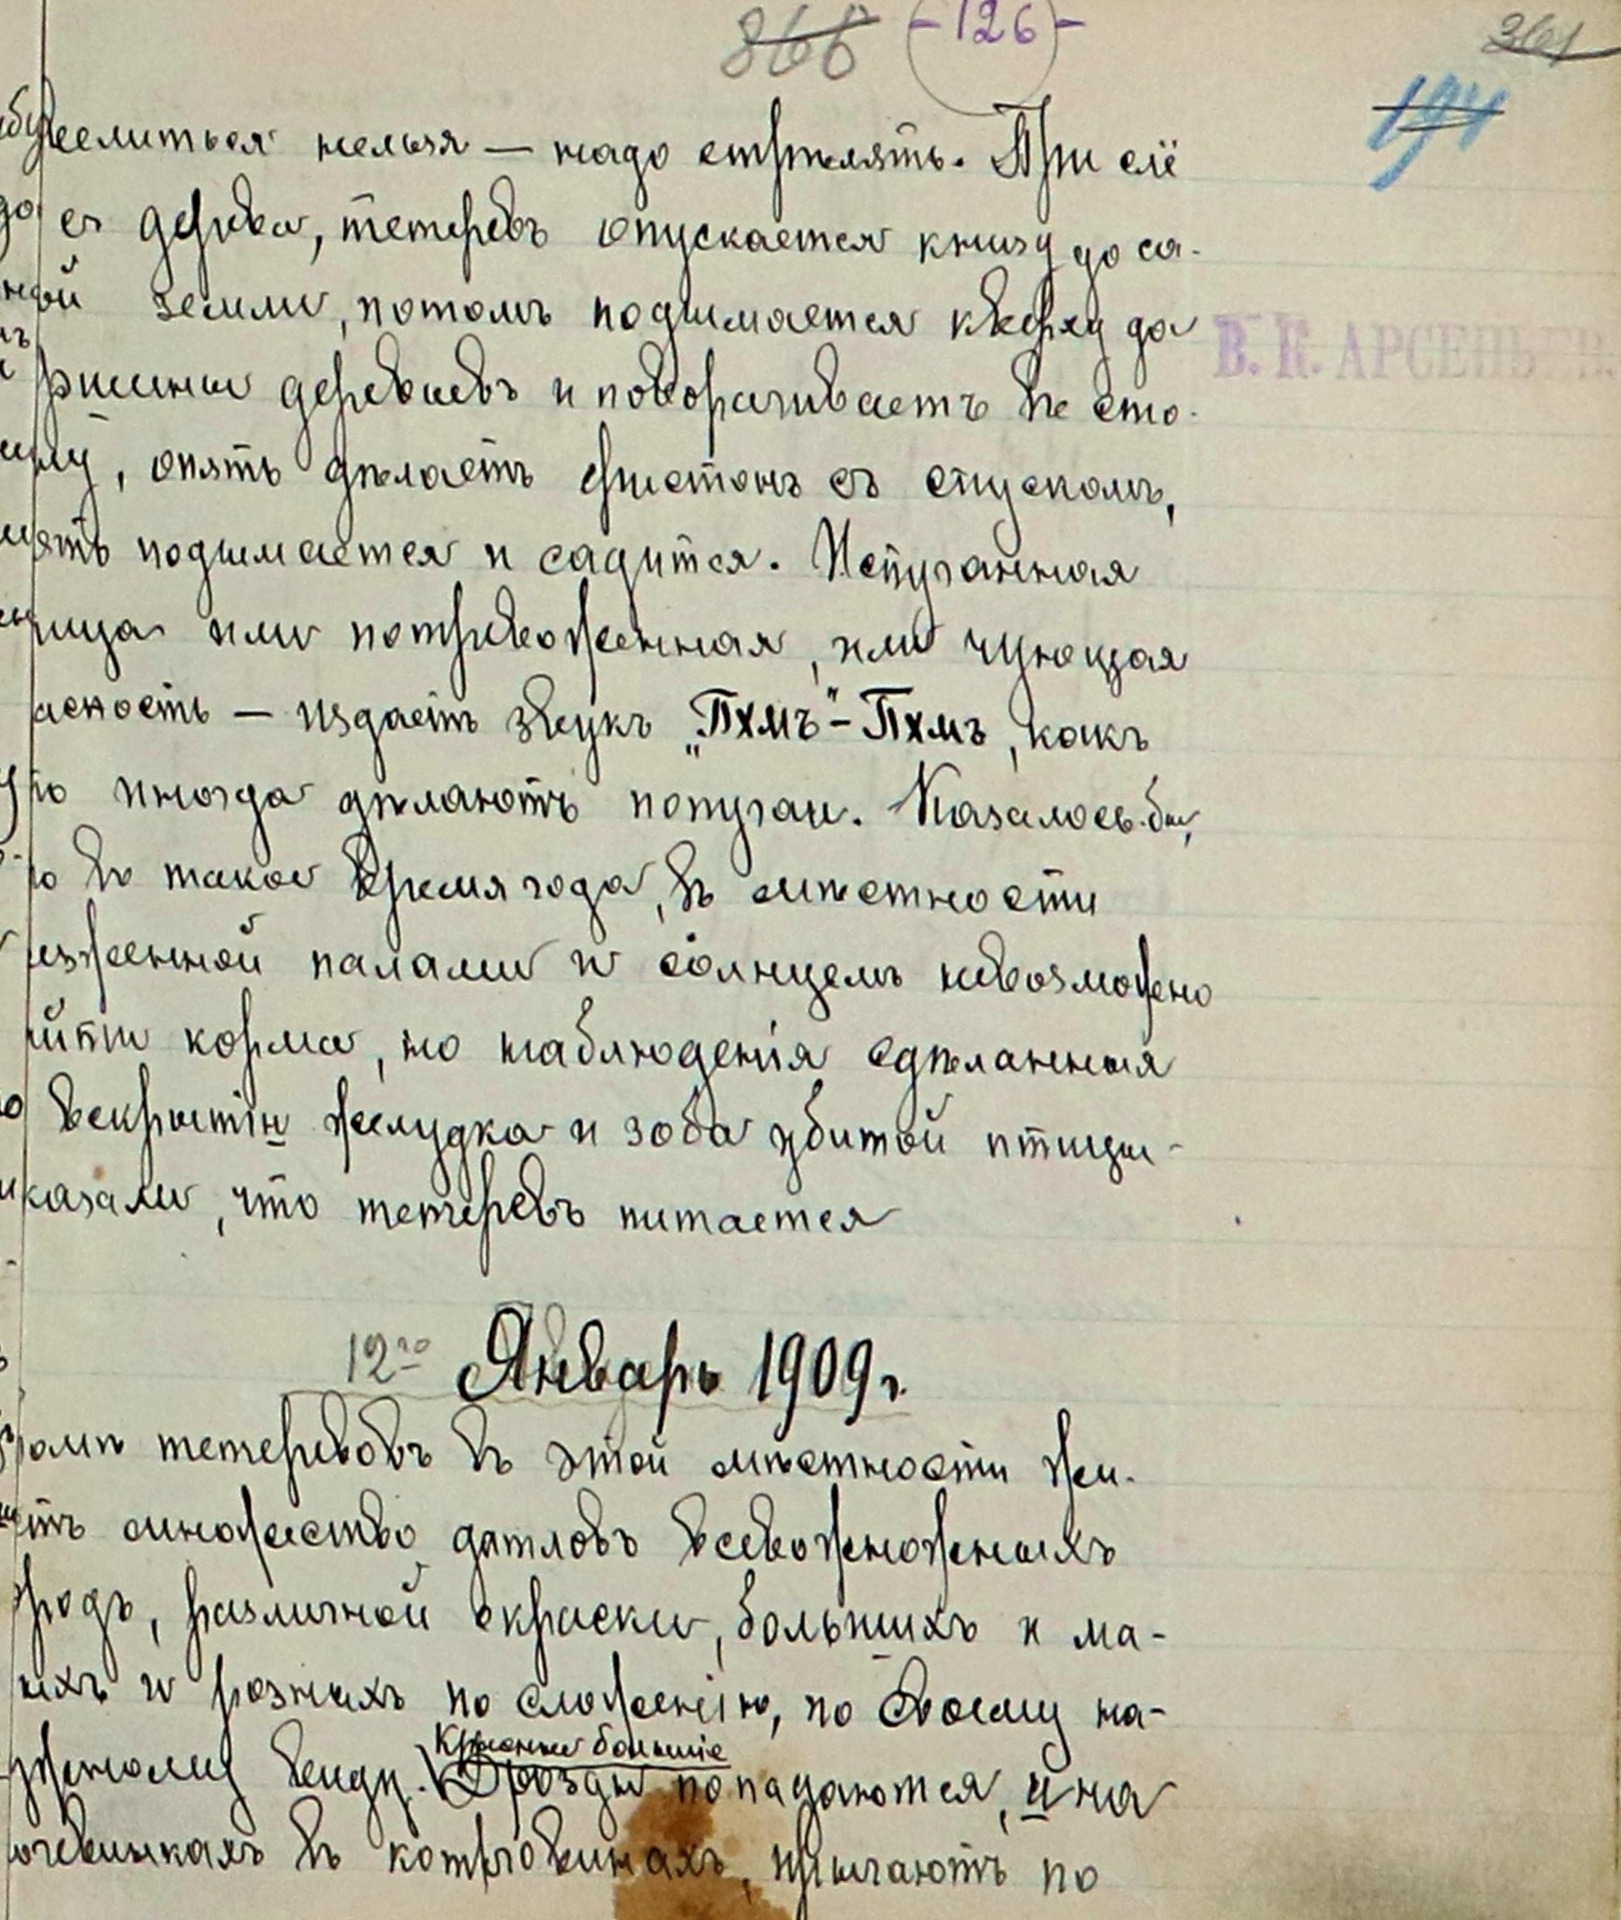 866 -126- 361
194
веселиться нельзя — надо стрѣлять. При слё
съ дерева, тетеревъ опускается книзу до са-
мой земли, потомъ подымается кверху до
ршины деревьевъ и поворачиваетъ въ сто-
, опять дѣлаетъ фистонъ съ спускомъ,
опять подымается и садится. Испуганная
птица или потревоженная, или чующая
асность — издаетъ звукъ „Пхмъ"-Пхмъ, какъ
то иногда дѣлаютъ попугаи. Казалось-бы,
о въ такое время года, въ мѣстности
ызженной палами и солнцемъ невозможно
йти корма, но наблюденія сдѣланныя
вскрытіи желудка и зоба убитой птицы-
казали, что тетеревъ питается
В. К. АРСЕНЬЕВ.
12го Январь 1909 г.
ромѣ тетеревовъ въ этой мѣстности жи-
етъ множество дятловъ всевожможныхъ
родъ, различной окраски, большихъ и ма-
ыхъ и розныхъ по сложенію, по своему на-
ужному виду. Дрозды попадаются, и на
большіе
очевикахъ въ которовинахъ, прыгаютъ по